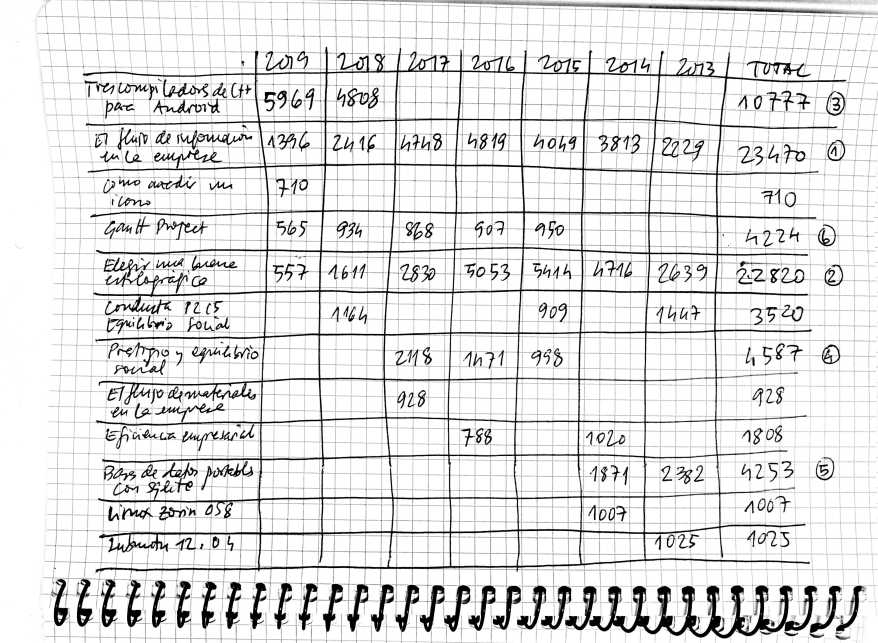 2019 2018 2017 2016 2015 2014 2013 TOTAL
Tres compiladores de C++
para Android 5969 4808 10777 ③
El flujo de información
en la empresa 1396 2416 4748 4819 4049 3813 2229 23470 ①
como anadir un
icono 710 710
Gantt Project 565 934 868 907 950 4224 ⑥
Elegir una buena
estilográfica 557 1611 2830 5053 5414 4716 2639 22820 ②
Conducta
Equilibrio social 1164 909 1447 3520
Prestigio y equilibrio
social 2118 1471 998 4587 ④
El flujo de materiales
en la empresa 928 928
Eficiencia empresarial 788 1020 1808
Bases de datos portables
con sqlite 1871 2382 4253 ⑤
Linux Zorin OS 8 1007 1007
Lubuntu 12.04 1025 1025